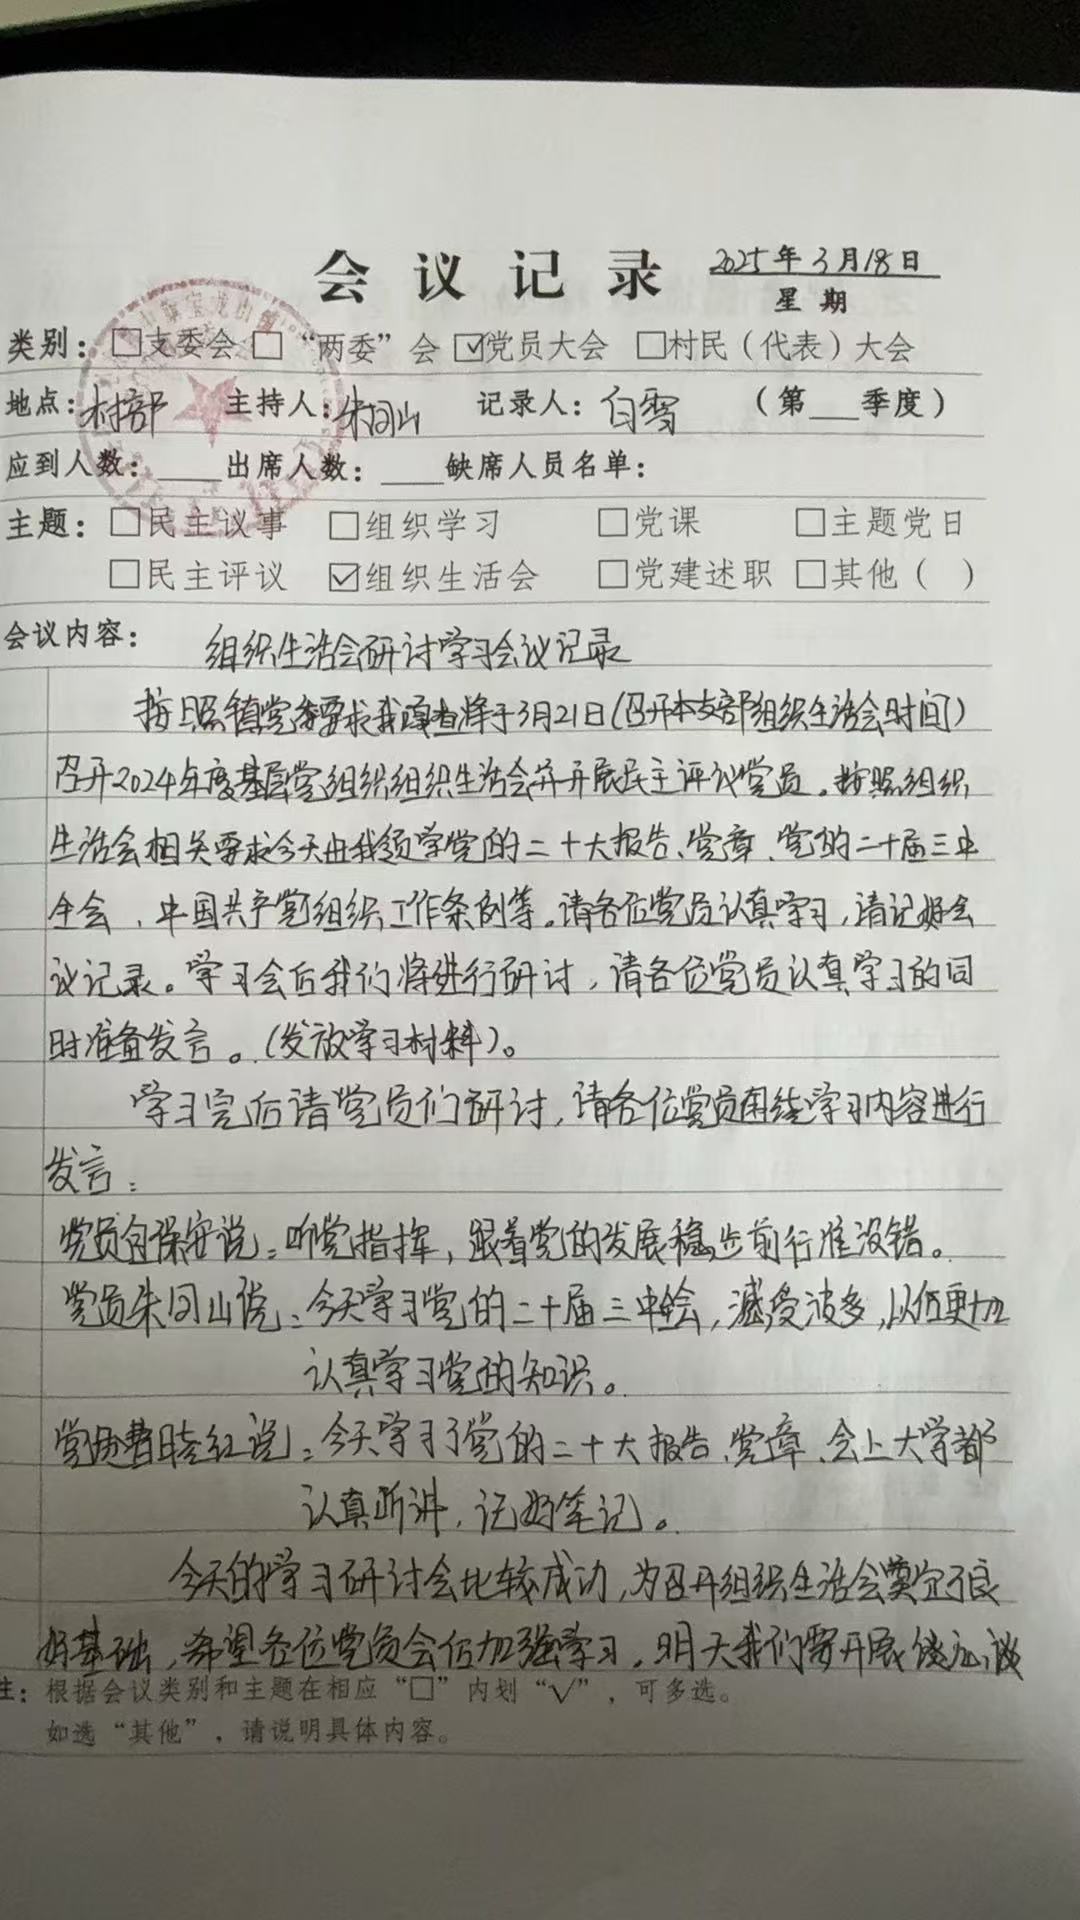 会议记录 2025年3月18日
星期
类别：□支委会 □“两委”会 ☑党员大会 □村民（代表）大会
地点：村部 主持人：朱同山 记录人：白雪 （第___季度）
应到人数：____出席人数：____缺席人员名单：
主题：□民主议事 □组织学习 □党课 □主题党日
□民主评议 ☑组织生活会 □党建述职 □其他（ ）
会议内容： 组织生活会研讨学习会议记录
按照镇党委要求我嘎查将于3月21日（召开本支部组织生活会时间）
召开2024年度基层党组织组织生活会并开展民主评议党员。按照组织
生活会相关要求今天由我领学党的二十大报告、党章、党的二十届三中
全会、中国共产党组织工作条例等。请各位党员认真学习，请记好会
议记录。学习会后我们将进行研讨，请各位党员认真学习的同
时准备发言。（发放学习材料）。
学习完后请党员们研讨，请各位党员围绕学习内容进行
发言：
党员包保安说：听党指挥，跟着党的发展稳步前行准没错。
党员朱同山说：今天学习党的二十届三中全会，感受波多，以后更加
认真学习党的知识。
党员曹晓红说：今天学习了党的二十大报告、党章、会上大学都
认真听讲，记好笔记。
今天的学习研讨会比较成功，为召开组织生活会奠定了良
好基础，希望各位党员会后加强学习。明天我们要开展谈心谈
注：根据会议类别和主题在相应“□”内划“√”，可多选。
如选“其他”，请说明具体内容。